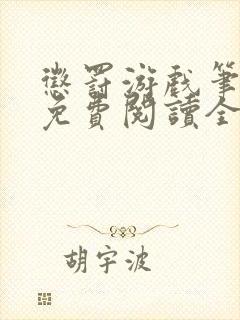 懲罰游戲筆
免費閱讀全
胡宇波